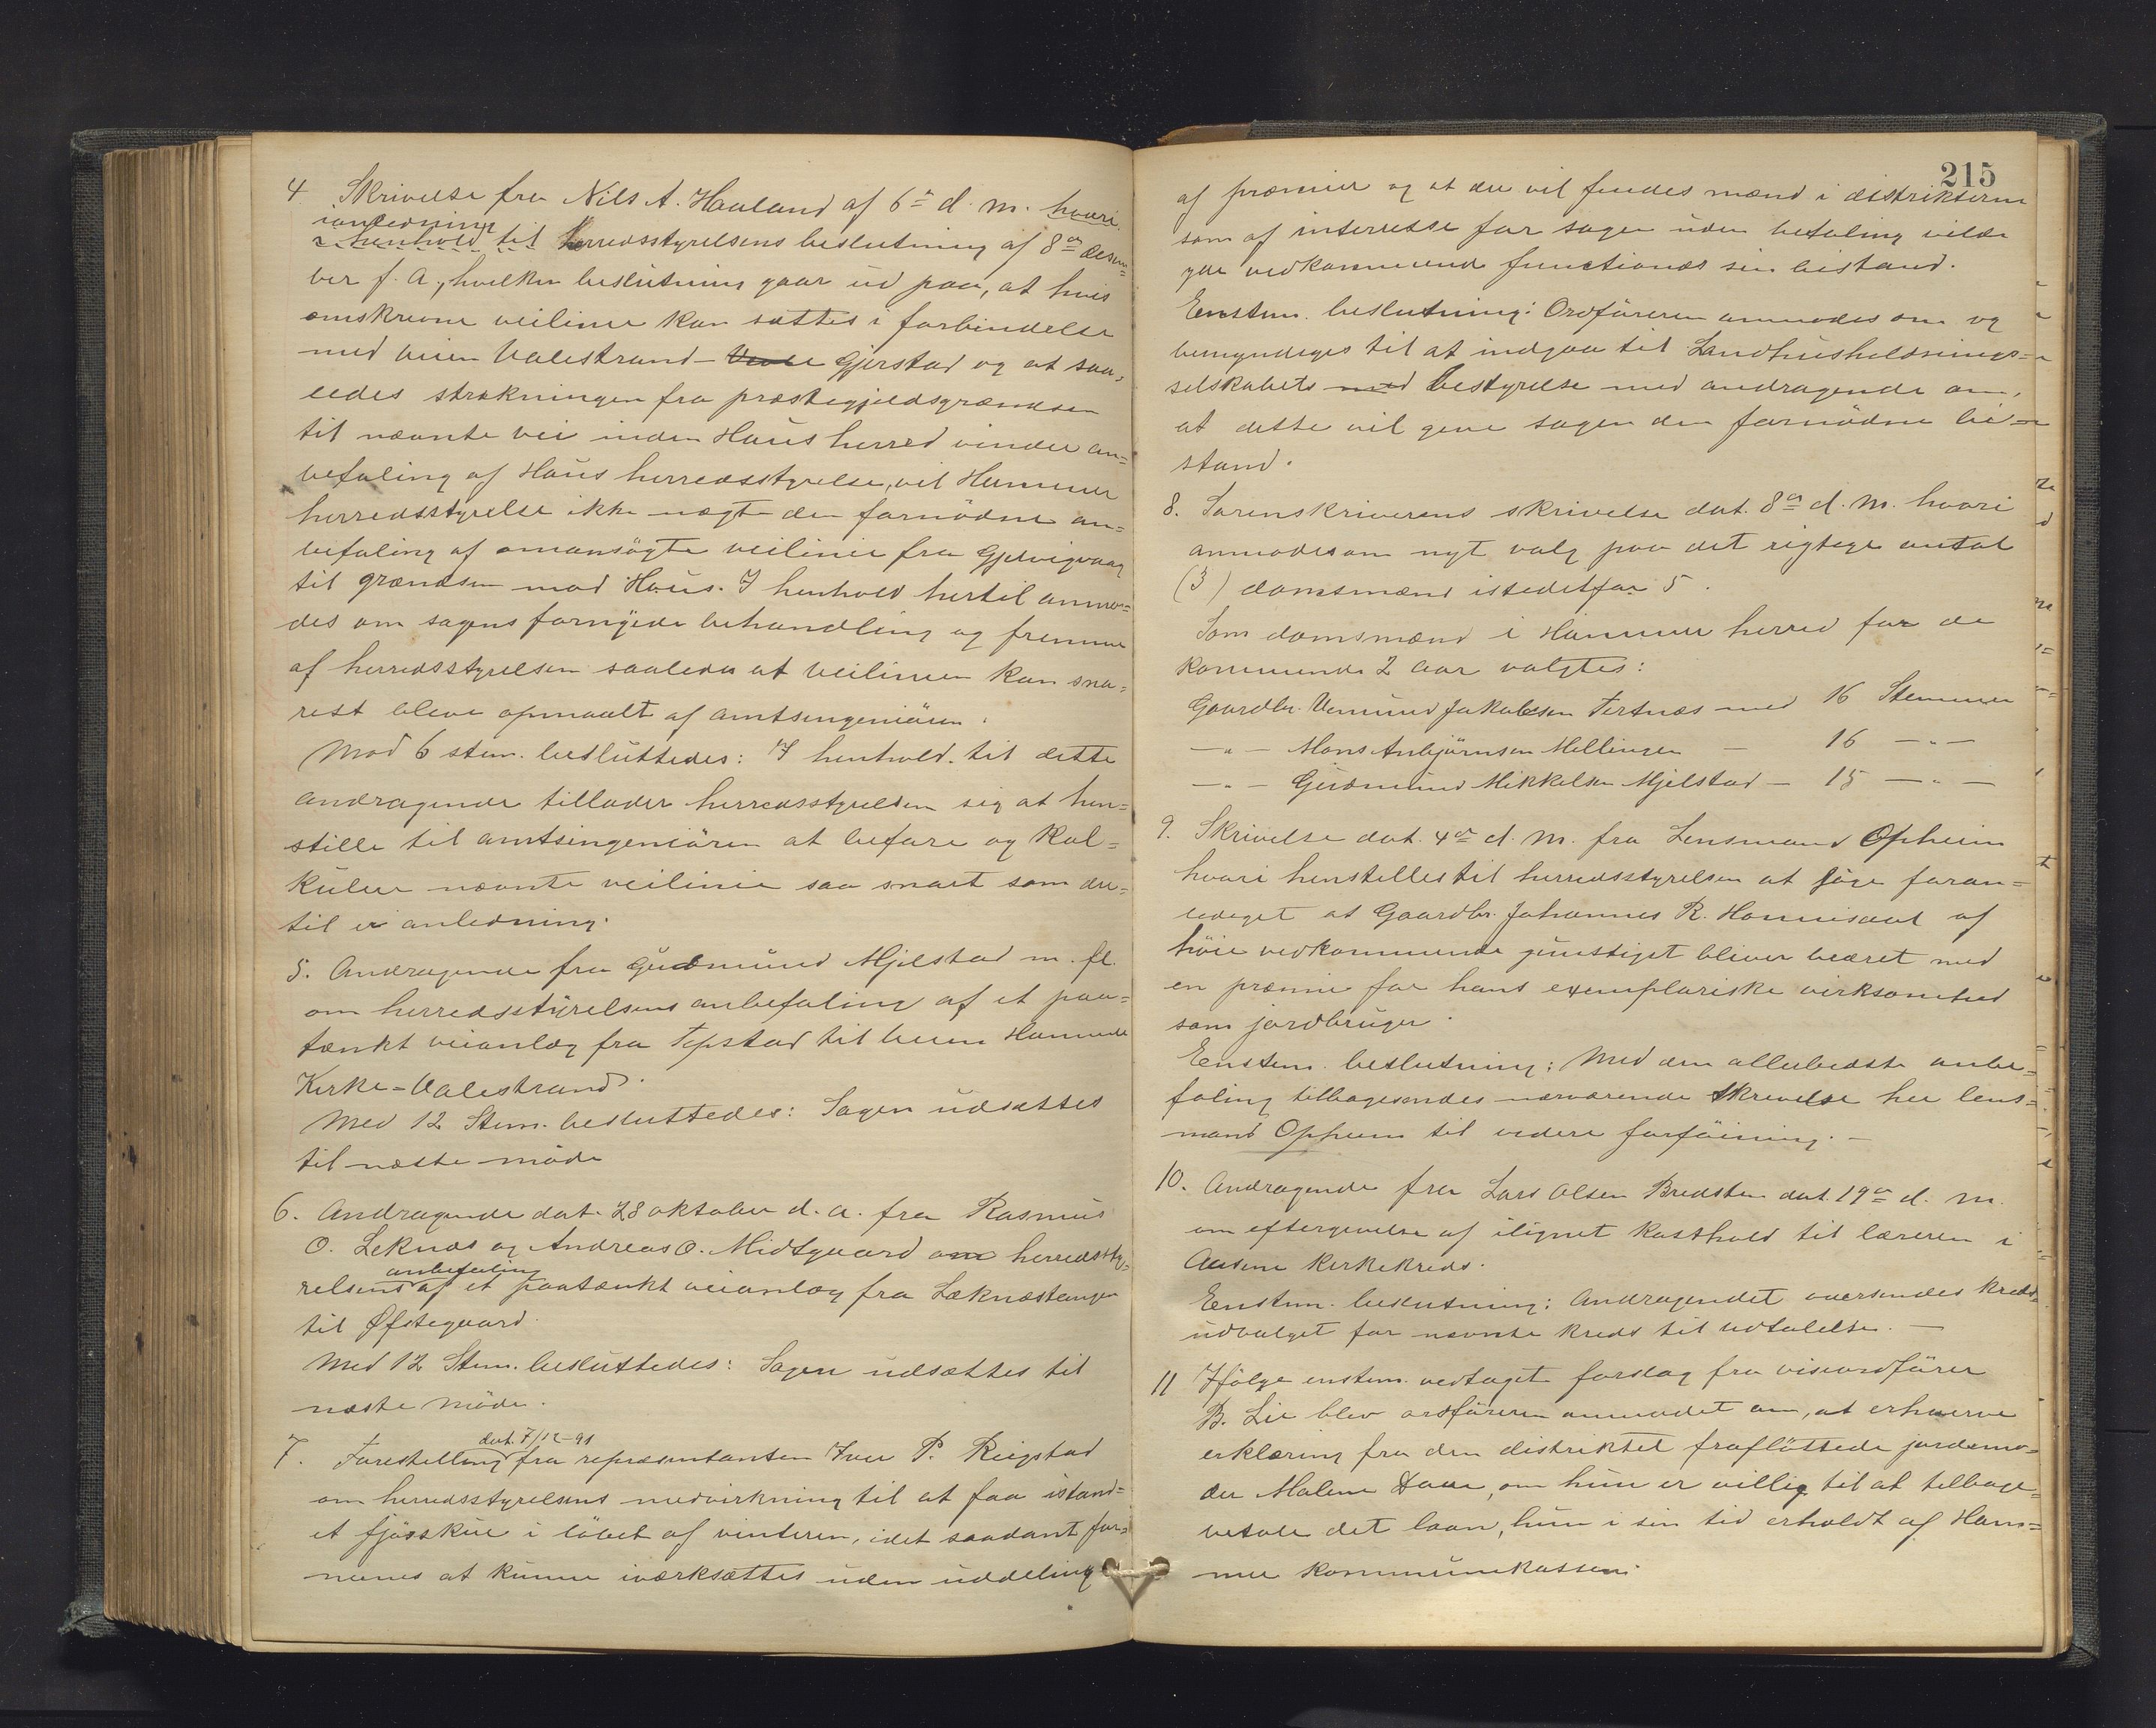 4 Skrivelse fra Nils A. Hauland af 6te d. m. hvori
ianledning
i henhold til herredsstyrelsens beslutning af 8de decem=
ber f. A., hvilken beslutning gaar ud paa, at hvis
omskrevne veilinie kan sættes i forbindelse
med veien Valestrand - Gjerstad og at saa=
ledes strækningen fra præstegjeldsgrændsen
til nævnte vei inden Haus herred vinder an=
befaling af Haus herredsstyrelse, vil Hammer
herredsstyrelse ikke nægte den fornødne an=
befaling af omansøgte veilinie fra Gjervigvaag
til grændsen mod Haus. I henhold hertil anmo=
des om sagens fornyede behandling og fremme
af herredsstyrelsen saaledes at veilinien kan sna=
rest blive opmaalt af amtsingeniøren.
Mod 6 stem. besluttedes: I henhold til dette
andragende tillader herredsstyrelsen sig at hen=
stille til amtsingeniøren at befare og kal=
kulere nævnte veilinie saa snart som der=
til er anledning.
5. Andragende fra Gudmund Mjelstad m. fl.
om herredsstyrelsens anbefaling af et paa=
tænkt veianlæg fra Tepstad til veien Hammer
Kirke - Valestrand.
Med 12 Stem. besluttedes: Sagen udsættes
til næste møde
6. Andragende dat. 28 oktober d. a. fra Rasmus
O. Leknæs og Andreas O. Midtgaard om herredssty=
anbefaling
relsens af et paatænkt veianlæg fra Læknæstangen
til Øfstegaard.
Med 12 Stem. besluttedes: Sagen udsættes til
næste møde.
dat. 7/12-91
7. Forestilling fra repræsentanten Iver P. Reigstad
om herredsstyrelsens medvirkning til at faa istand=
et fjøsskue i løbet af vinteren, idet saadant for=
menes at kunne iværksættes uden uddeling
215
af præmier og at der vil findes mænd i distrikterne
som af interesse for sagen uden betaling vilde
yde vedkommende functionær sin bistand.
Enstem. beslutning: Ordføreren anmodes om og
bemyndiges til at indgaa til Landhusholdnings=
selskabets med bestyrelse med andragende om,
at dette vil give sagen den fornødne bi=
stand.
8. Sorenskriverens skrivelse dat. 8de d. M. hvori
anmodes om nyt valg paa det rigtige antal
(3) domsmænd istedetfor 5.
Som domsmænd i Hammer herred for de
kommende 2 aar valgtes:
Gaardbr. Vemund Jakobsen Tertnæs med 16 Stemmer
— " — Mons Anbjørnsen Mellingen — 16 — " —
— " — Gudmund Mikkelsen Mjelstad — 15 — " —
9. Skrivelse dat. 4de d. M. fra Lensmand Opheim
hvori henstilles til herredsstyrelsen at søge foran=
lediget at Gaardbr. Johannes R. Hannisdal af
høie vedkommende gunstiget bliver beæret med
en præmie for hans exemplariske virksomhed
som jordbruger.
Enstem. beslutning: Med den allerbedste anbe=
faling tilbagesendes nærværende skrivelse hr lens=
mand Opheim til videre forføining. —
10. Andragende fra Lars Olsen Bredsten dat. 19de d. M.
om eftergivelse af ilignet kosthold til læreren i
Aasene kirkekreds.
Enstem. beslutning: Andragendet oversendes kreds=
udvalget for nævnte kreds til udtalelse. —
11 Ifølge enstem. vedtaget forslag fra viseordfører
B. Lie blev ordføreren anmodet om, at erhverve
erklæring fra den distriktet frafløttede jordemo=
der Malene Daae, om hun er villig til at tilbage=
betale det laan, hun i sin tid erholdt af Ham=
mer kommunekasse.